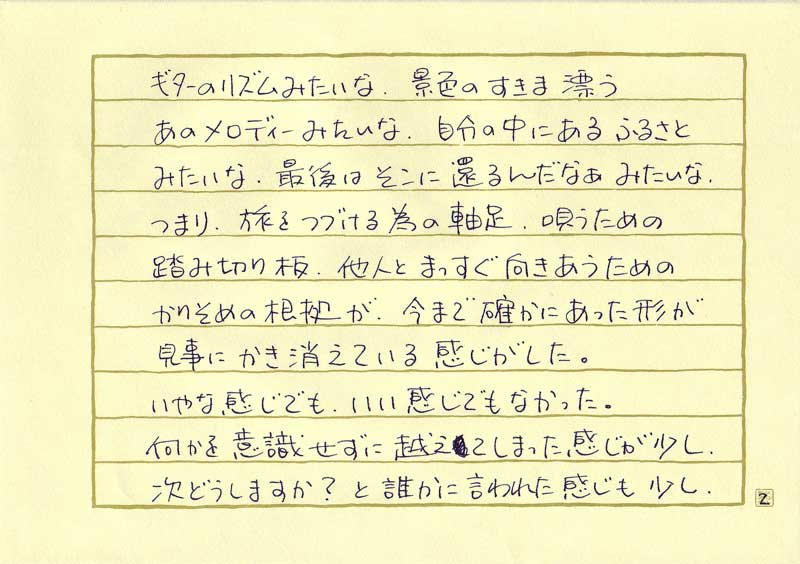 ギターのリズムみたいな. 景色のすきま 漂う
あのメロディーみたいな. 自分の中にある ふるさと
みたいな. 最後は そこに 還るんだなぁ みたいな.
つまり. 旅を つづける 為の 軸足. 唄うための
踏み切り板. 他人と まっすぐ 向きあうための
かりそめの 根拠が. 今まで 確かにあった 形が
見事に かき消えている 感じがした。
いやな感じでも. いい感じでもなかった。
何かを 意識せずに 越えてしまった 感じが 少し.
次どうしますか? と 誰かに 言われた 感じも 少し.
2